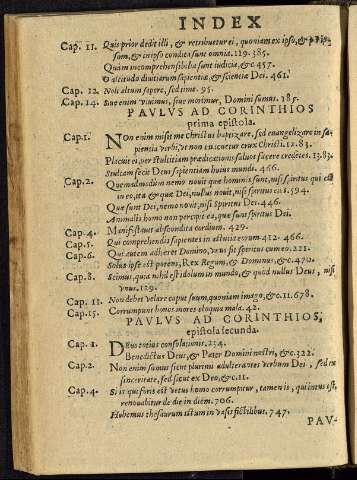 INDEX
Cap. 11. Quis prior dedit illi, & retribuetur ei, quoniam ex ipso, & per ip-
sum, & in ipso condita sunt omnia. 119. 385.
Quàm incomprehensibilia sunt iudicia, &c. 457.
O altitudo diuitiarum sapientiæ, & scientiæ Dei. 461.
Cap. 12. Noli altum sapere, sed time. 95.
Cap. 14. Siue enim viuimus, siue morimur, Domini sumus. 185.
PAVLVS AD CORINTHIOS
prima epistola.
Cap. 1. Non enim misit me Christus baptizare, sed euangelizare in sa-
pientia verbi, vt non euacuetur crux Christi. 12. 83.
Placuit ei, per stultitiam prædicationis saluos facere credētes. 13. 83.
Stultam fecit Deus sapientiam huius mundi. 466.
Cap. 2. Quemadmodum nemo nouit quæ hominis sunt, nisi spiritus qui est
in eo, ita & quæ Dei, nullus nouit, nisi spiritus eius. 594.
Quæ sunt Dei, nemo nouit, nisi Spiritus Dei. 446.
Animalis homo non percipit ea, quæ sunt spiritus Dei.
Cap. 4. Manifestauit abscondita cordium. 429.
Cap. 5. Qui comprehendit sapientes in astutia eorum. 412. 466.
Cap. 6. Qui autem adhæret Domino, vnus fit spiritus cum eo. 221.
Solus ipse est potens, Rex Regum, & Dominus, &c. 470.
Cap. 8. Scimus, quia nihil est idolum in mundo, & quod nullus Deus, nisi
vnus. 129.
Cap. 11. Non debet velare caput suum, quoniam imago, &c. 11. 678.
Cap. 15. Corrumpunt bonos mores eloquia mala. 42.
PAVLVS AD CORINTHIOS,
epistola secunda.
Cap. 1. Deus totius consolationis. 234.
Benedictus Deus, & Pater Domini nostri, &c. 322.
Cap. 2. Non enim sumus sicut plurimi adulterantes verbum Dei, sed ex
sinceritate, sed sicut ex Deo, &c. 11
Cap. 4. Si is qui foris est vetus homo corrumpitur, tamen is, qui intus est,
renouabitur de die in diem. 706.
Habemus thesaurum istum in vasis fictilibus. 747.
PAV-